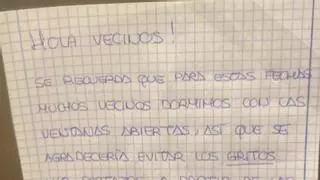 HOLA VECINOS!
SE RECUERDA QUE PARA ESTAS FECHAS
MUCHOS VECINOS DORMIMOS CON LAS
VENTANAS ABIERTAS, ASÍ QUE SE
AGRADECERÍA EVITAR LOS GRITOS
A PARTIR DE LAS